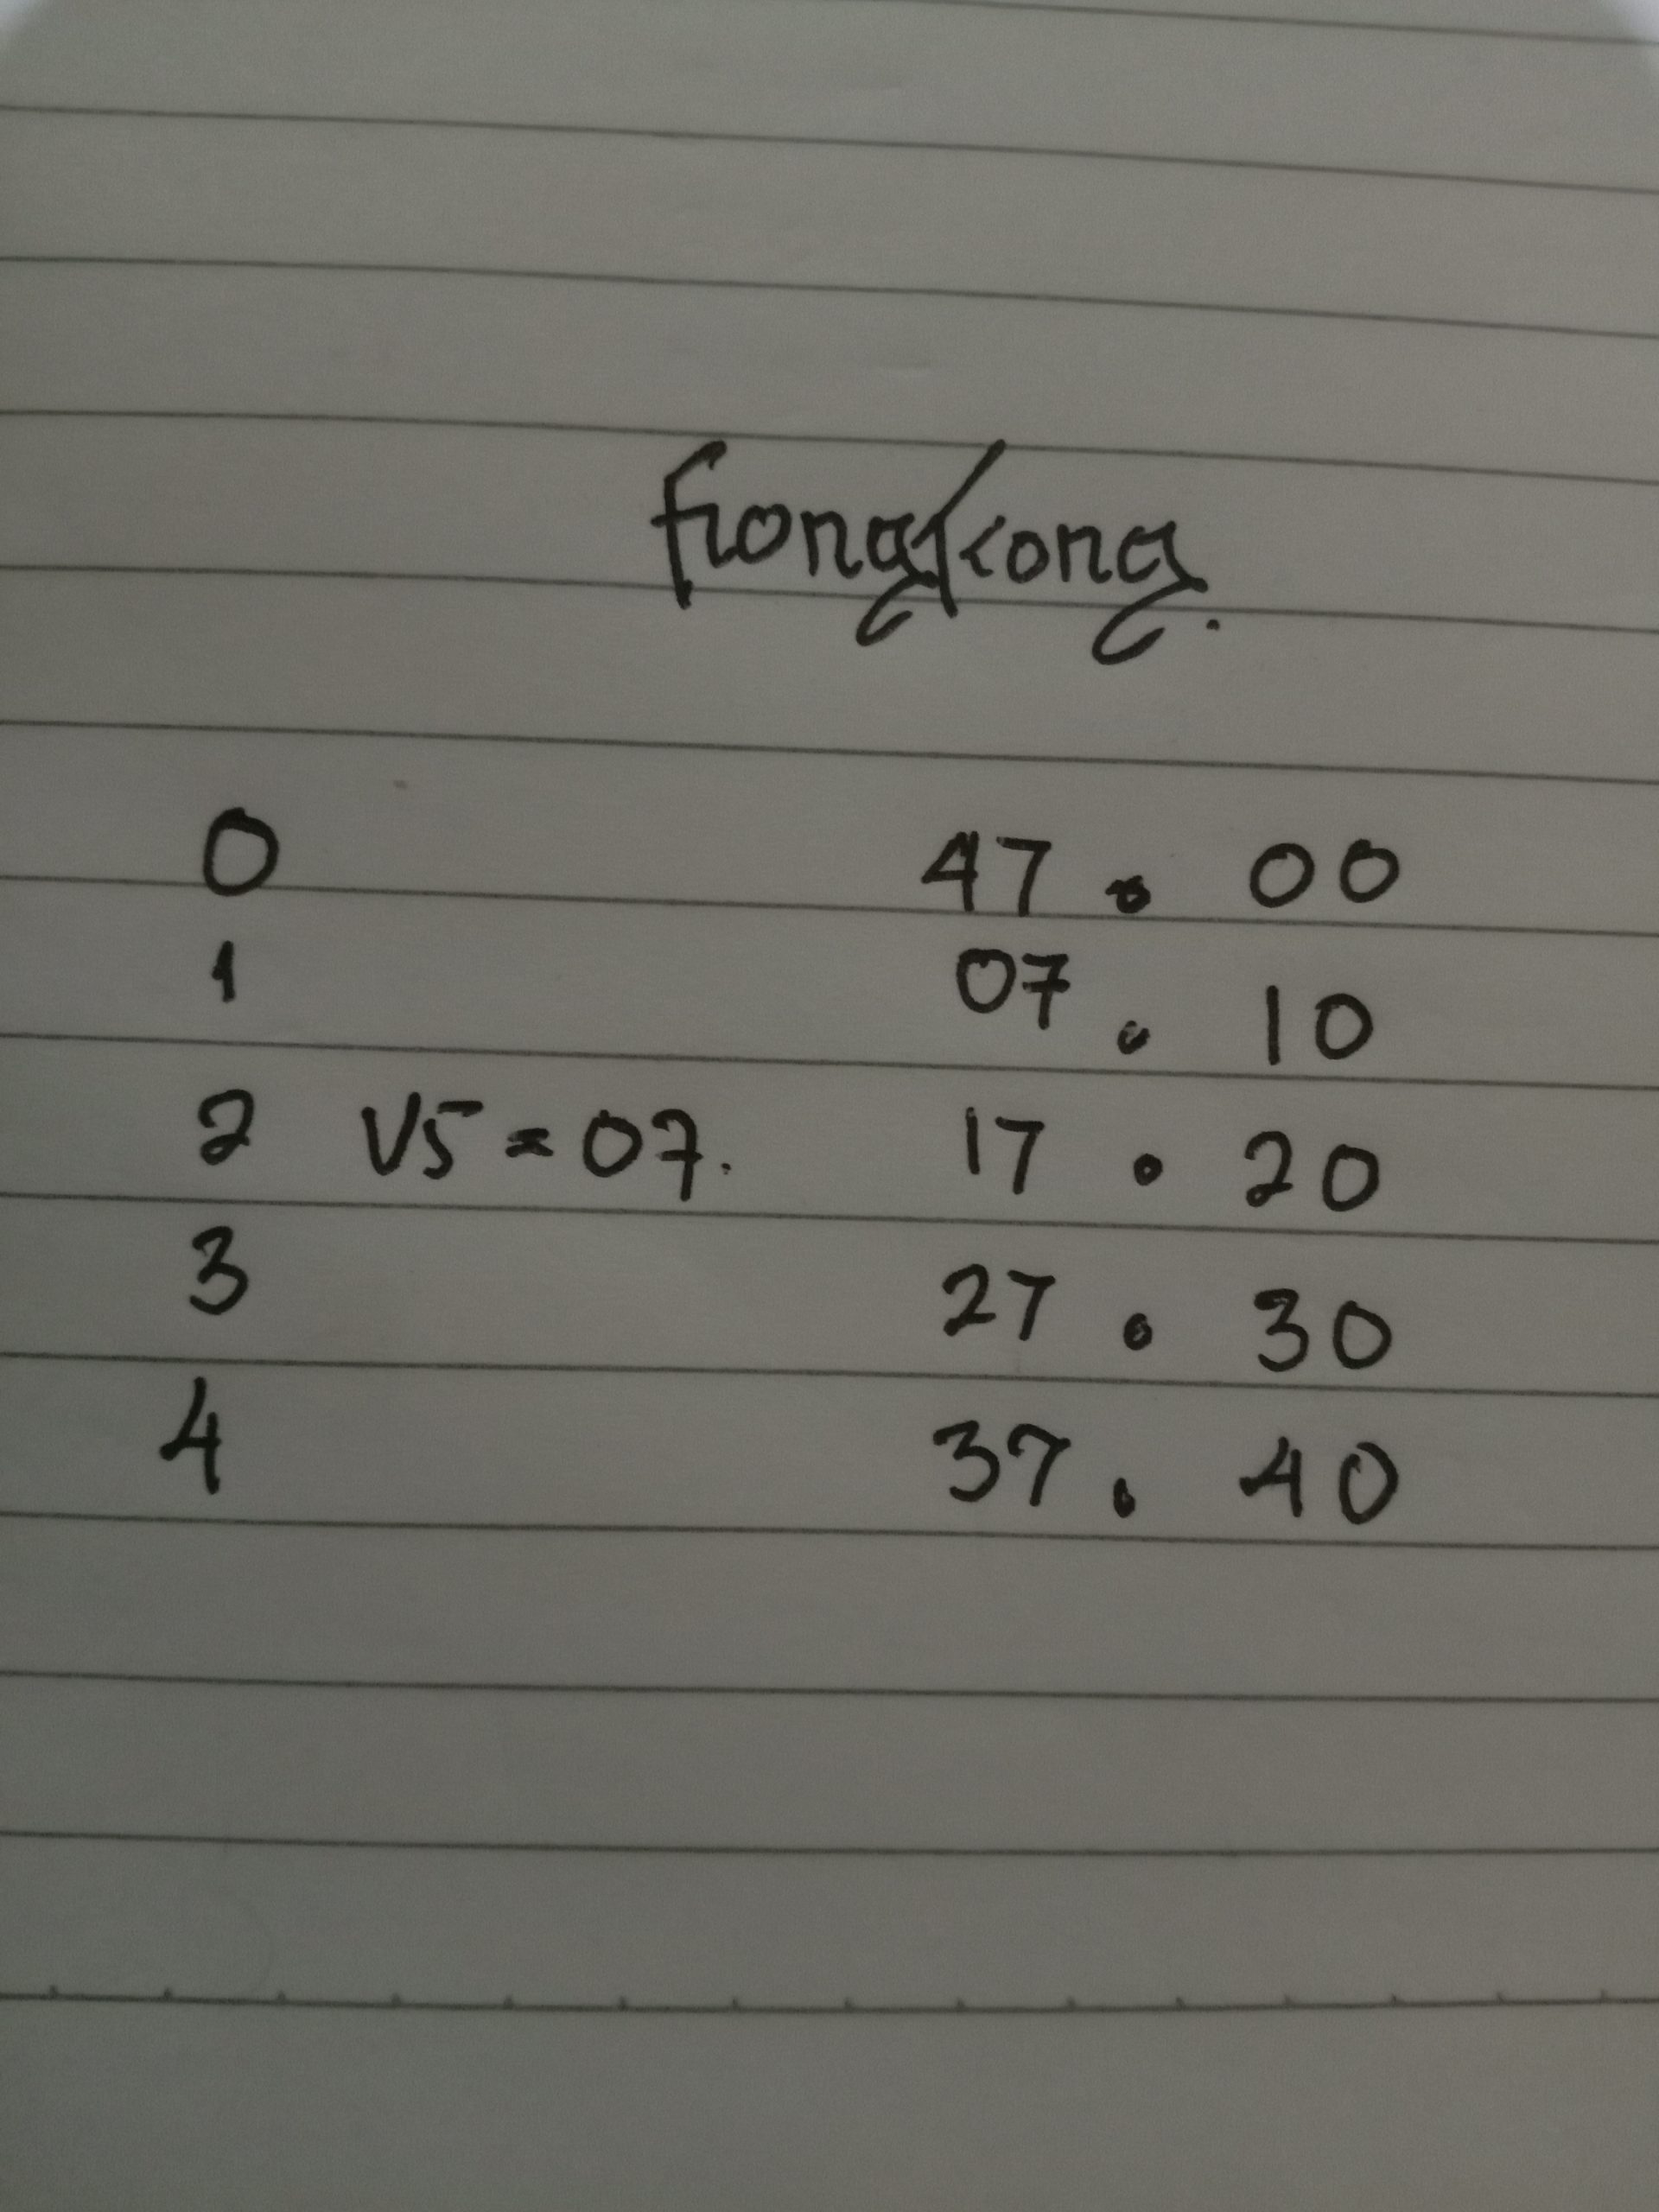 HongKong.
0 47 . 00
1 07 . 10
2 VS = 07. 17 . 20
3 27 . 30
4 37 . 40